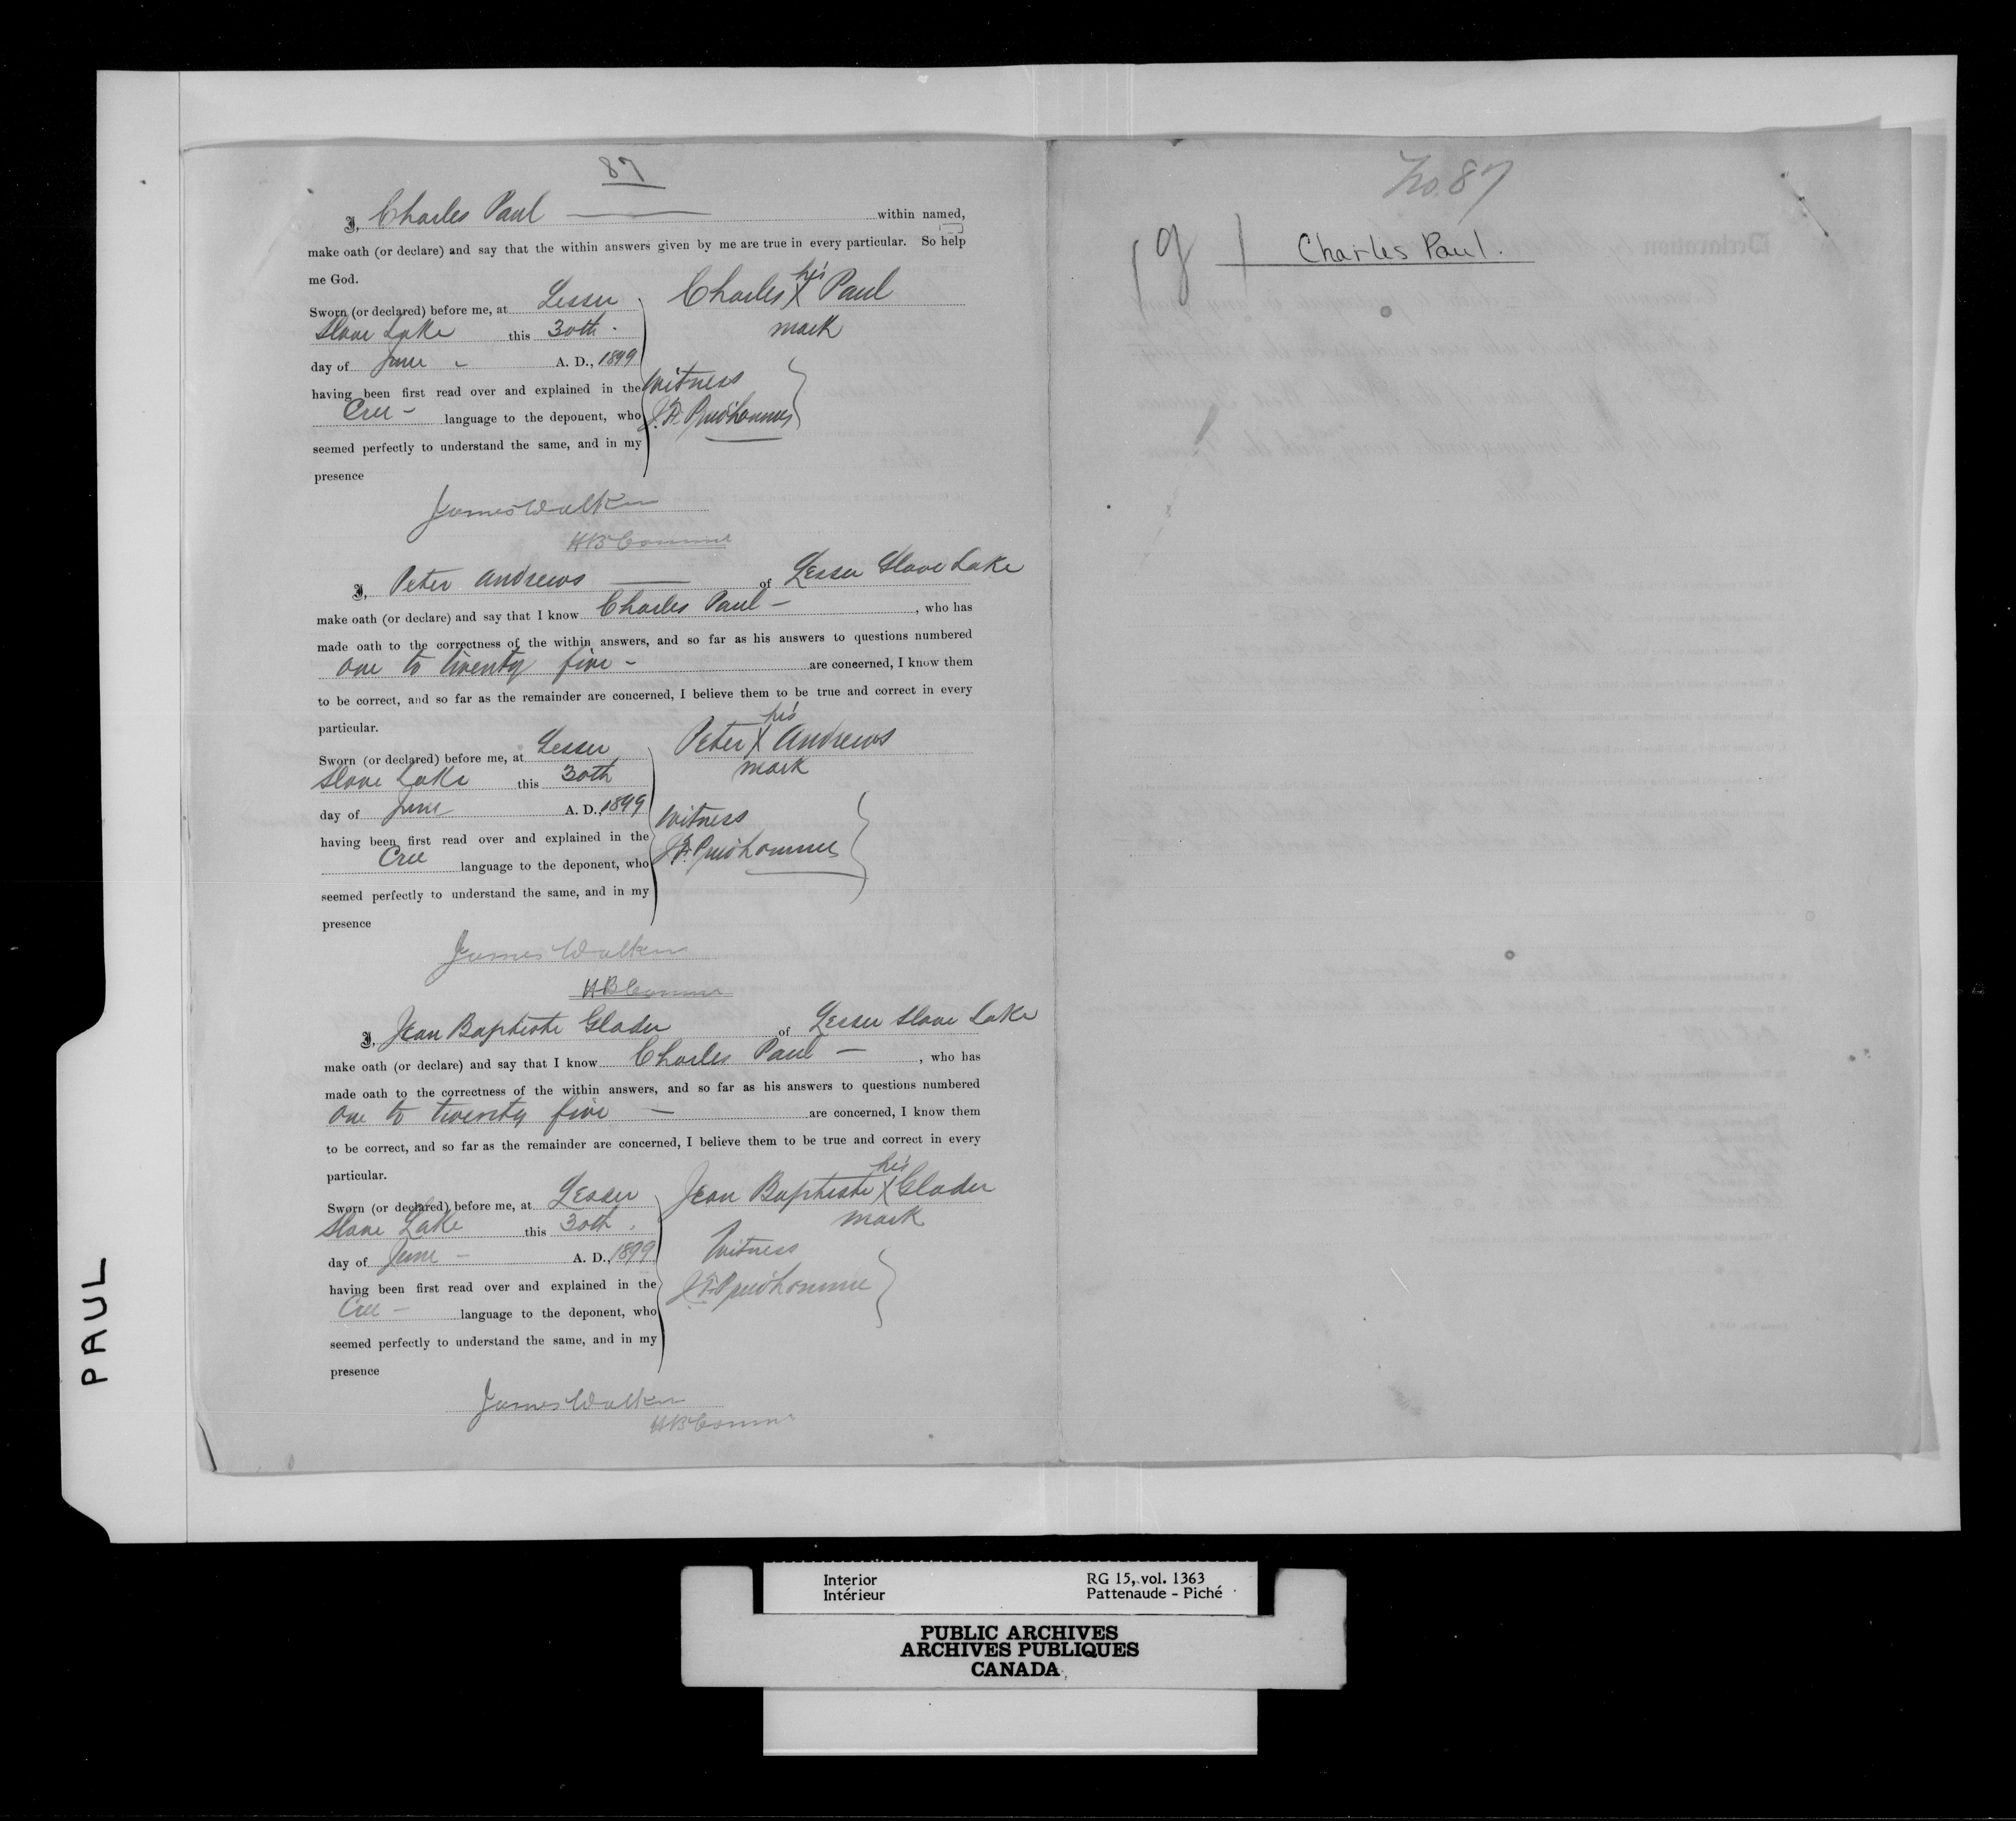 87
I, Charles Paul within named,
make oath (or declare) and say that the within answers given by me are true in every particular. So help
me God.
Sworn (or declared) before me, at Lesser
Slave Lake this 30th
day of June A. D., 1899
having been first read over and explained in the
Cree language to the deponent, who
seemed perfectly to understand the same, and in my
presence
Charles his X Paul
mark
Witness
J.F. Prudhomme
James Walker
HB Commr
I, Peter Andrews of Lesser Slave Lake
make oath (or declare) and say that I know Charles Paul, who has
made oath to the correctness of the within answers, and so far as his answers to questions numbered
one to twenty five are concerned, I know them
to be correct, and so far as the remainder are concerned, I believe them to be true and correct in every
particular.
Sworn (or declared) before me, at Lesser
Slave Lake this 30th
day of June A. D., 1899
having been first read over and explained in the
Cree language to the deponent, who
seemed perfectly to understand the same, and in my
presence
Peter his X Andrews
mark
Witness
J.F. Prudhomme
James Walker
HB Commr
I, Jean Baptiste Glader of Lesser Slave Lake
make oath (or declare) and say that I know Charles Paul, who has
made oath to the correctness of the within answers, and so far as his answers to questions numbered
one to twenty five are concerned, I know them
to be correct, and so far as the remainder are concerned, I believe them to be true and correct in every
particular.
Sworn (or declared) before me, at Lesser
Slave Lake this 30th
day of June A. D., 1899
having been first read over and explained in the
Cree language to the deponent, who
seemed perfectly to understand the same, and in my
presence
Jean Baptiste his X Glader
mark
Witness
J.F. Prudhomme
James Walker
HB Commr
No. 87
Charles Paul.
PAUL
Interior
Intérieur
RG 15, vol. 1363
Pattenaude - Piché
PUBLIC ARCHIVES
ARCHIVES PUBLIQUES
CANADA